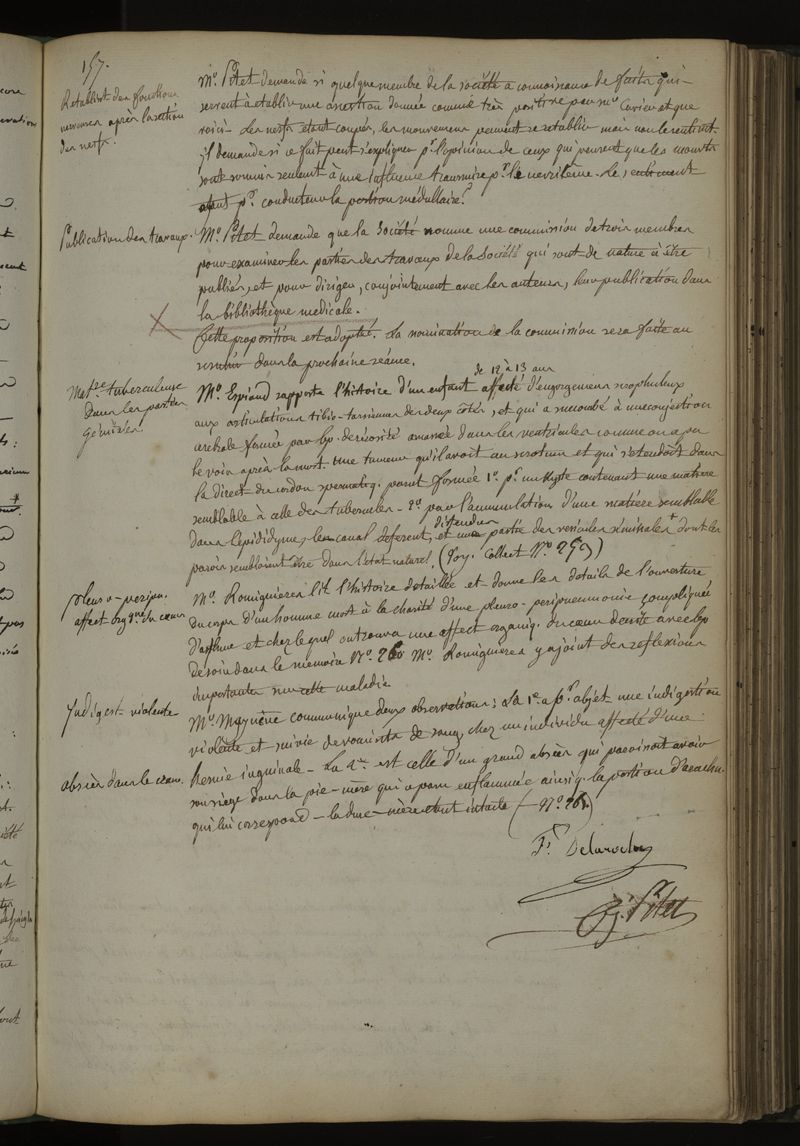 157.
Retablist des fonctions
nerveuses après la section
des nerfs.
Mr. Pétet demande si quelque membre de la société a connaissance de faits qui
servent à établir une assertion donnée comme très positive par mr. Cuvier et que
voici - les nerfs étant coupés, les mouvemens peuvent se rétablir mais non le sentimt.
il demande si ce fait peut s'expliquer pr. l'opinion de ceux qui pensent que les mouvts
sont soumis seulement à une influence transmise pr. le nevrilême. Le sentiment
ayant pr. conducteur la portion médullaire?
Publication des travaux.
Mr. Pétet demande que la Société nomme une commission de trois membres
pour examiner les parties des travaux de la Société qui sont de nature à être
publiés, et pour diriger, conjointement avec les auteurs, leur publication dans
la bibliothèque médicale.
Cette proposition est adoptée. La nomination de la commission sera faite au
scrutin dans la prochaine séance.
Matre tuberculeuse
dans les parties
génitales
de 12 à 13 ans
Mr. Espiaud rapporte l'histoire d'un enfant affecté d'engorgemens scrophuleux
aux articulations tibio-tarsiennes des deux côtés, et qui a succombé à une
par de sérosité amassée dans les ventricules comme on a pu
le voir après la mort. Une tumeur qu'il avoit au scrotum et qui s'étendoit dans
la direct du cordon spermatiq. parut formée 1º. pr. un kyste contenant une matière
semblable à celle des tubercules - 2º. par l'accumulation d'une matière semblable
dans l'épididyme, le canal déferent, et une partie des vésicules séminales + dont les
distendues
parois sembloient être dans l'état naturel. (Voy. Collect Nº. 259)
pleuro-peripn.
affect orgque. du cœur
Mr. Romiguieres lit l'histoire detaillée et donne les details de l'ouverture
du corps d'un homme mort à la charité d'une pleuro-peripneumonie compliquée
d'asthme et chez lequel on trouva une affect organiq. du cœur decrite avec bp
de soin dans le memoire Nº. 260 Mr. Romiguieres y a joint des reflexions
importantes sur cette maladie
Indigest violente
Mr. Maynène communique deux observations: La 1e. a pr. objet une indigestion
violente et suivie de vomismts de sang, chez un individu affecté d'une
abscès dans le crane
hernie inguinale - La 2e. est celle d'un grand abscès qui paroissoit avoir
son siège dans la pie-mère qui a paru enflammée ainsiq. la portion d'arachn.
qui lui correspond - la dure-mère étant intacte (Nº. 261.)
Fs. Delaroche
Pétet